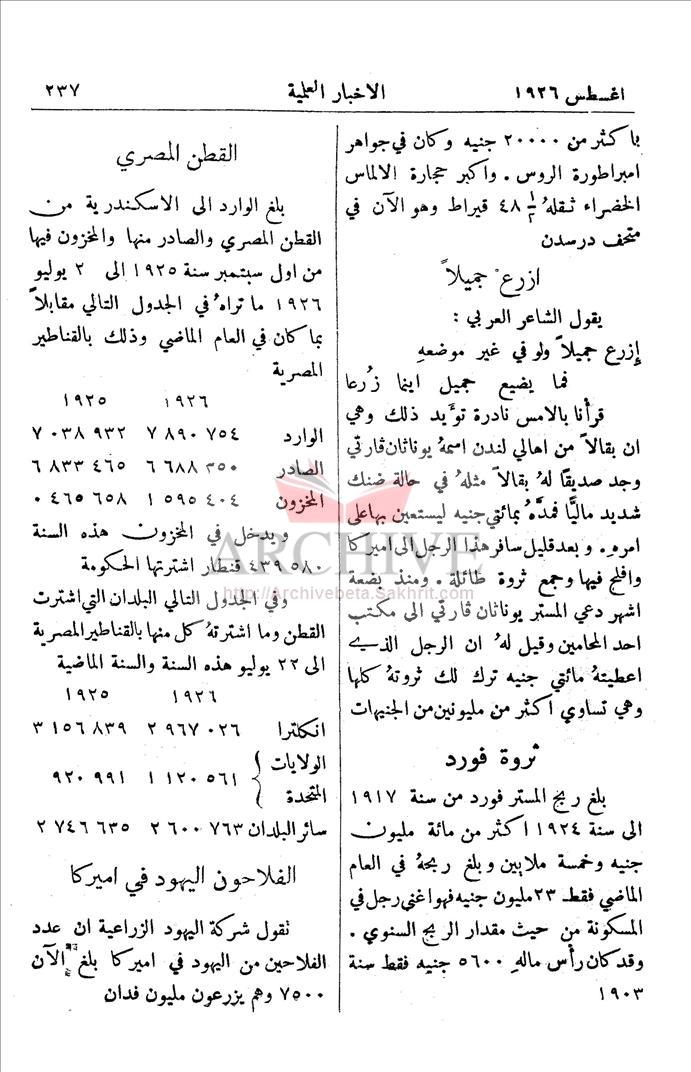 اغسطس ١٩٢٦
الاخبار العلمية
٢٣٧
با كثر من ٢٠٠٠٠ جنيه وكان في جواهر
امبراطورة الروس . واكبر حجارة الالماس
الخضراء ثقلهُ ٤٨ ١/٢ قيراط وهو الآن في
متحف درسدن
ازرع جميلاً
يقول الشاعر العربي :
إزرع جميلاً ولو في غير موضعهِ
فما يضيع جميل اينما زُرعا
قرأنا بالامس نادرة تؤيد ذلك وهي
ان بقالاً من اهالي لندن اسمهُ يوناثان ڤارتي
وجد صديقًا لهُ بقالاً مثلهُ في حالة ضنك
شديد ماليًّا فمدَّهُ بمائتي جنيه ليستعين بها على
امرهِ . وبعد قليل سافر هذا الرجل الى اميركا
وافلح فيها وجمع ثروة طائلة . ومنذ بضعة
اشهر دعي المستر يوناثان ڤارتي الى مكتب
احد المحامين وقيل لهُ ان الرجل الذي
اعطيتهُ مائتي جنيه ترك لك ثروتهُ كلها
وهي تساوي اكثر من مليونين من الجنيهات
ثروة فورد
بلغ ربح المستر فورد من سنة ١٩١٧
الى سنة ١٩٢٤ اكثر من مائة مليون
جنيه وخمسة ملايين وبلغ ربحهُ في العام
الماضي فقط ٢٣ مليون جنيه فهو اغنى رجل في
المسكونة من حيث مقدار الربح السنوي .
وقد كان رأس مالهِ ٥٦٠٠ جنيه فقط سنة
١٩٠٣
القطن المصري
بلغ الوارد الى الاسكندرية من
القطن المصري والصادر منها والمخزون فيها
من اول سبتمبر سنة ١٩٢٥ الى ٢ يوليو
١٩٢٦ ما تراهُ في الجدول التالي مقابلاً
بما كان في العام الماضي وذلك بالقناطير
المصرية
١٩٢٦ ١٩٢٥
الوارد ٧ ٨٩٠ ٧٥٤ ٧ ٠٣٨ ٩٣٢
الصادر ٦ ٦٨٨ ٣٥٠ ٦ ٨٣٣ ٤٦٥
المخزون ١ ٥٩٥ ٤٠٤ ٠ ٤٦٥ ٦٥٨
ويدخل في المخزون هذه السنة
٤٣٩ ٥٨٠ قنطار اشترتها الحكومة
وفي الجدول التالي البلدان التي اشترت
القطن وما اشترتهُ كل منها بالقناطير المصرية
الى ٢٢ يوليو هذه السنة والسنة الماضية
١٩٢٦ ١٩٢٥
انكلترا ٢ ٩٦٧ ٠٢٦ ٣ ١٥٦ ٨٣٩
الولايات
المتحدة } ١ ١٢٠ ٥٦١ ٩٢٠ ٩٩١
سائر البلدان ٢ ٦٠٠ ٧٦٣ ٢ ٧٤٦ ٦٣٥
الفلاحون اليهود في اميركا
تقول شركة اليهود الزراعية ان عدد
الفلاحين من اليهود في اميركا بلغ الآن
٧٥٠٠ وهم يزرعون مليون فدان
ARCHIVE
http://Archivebeta.Sakhrit.com